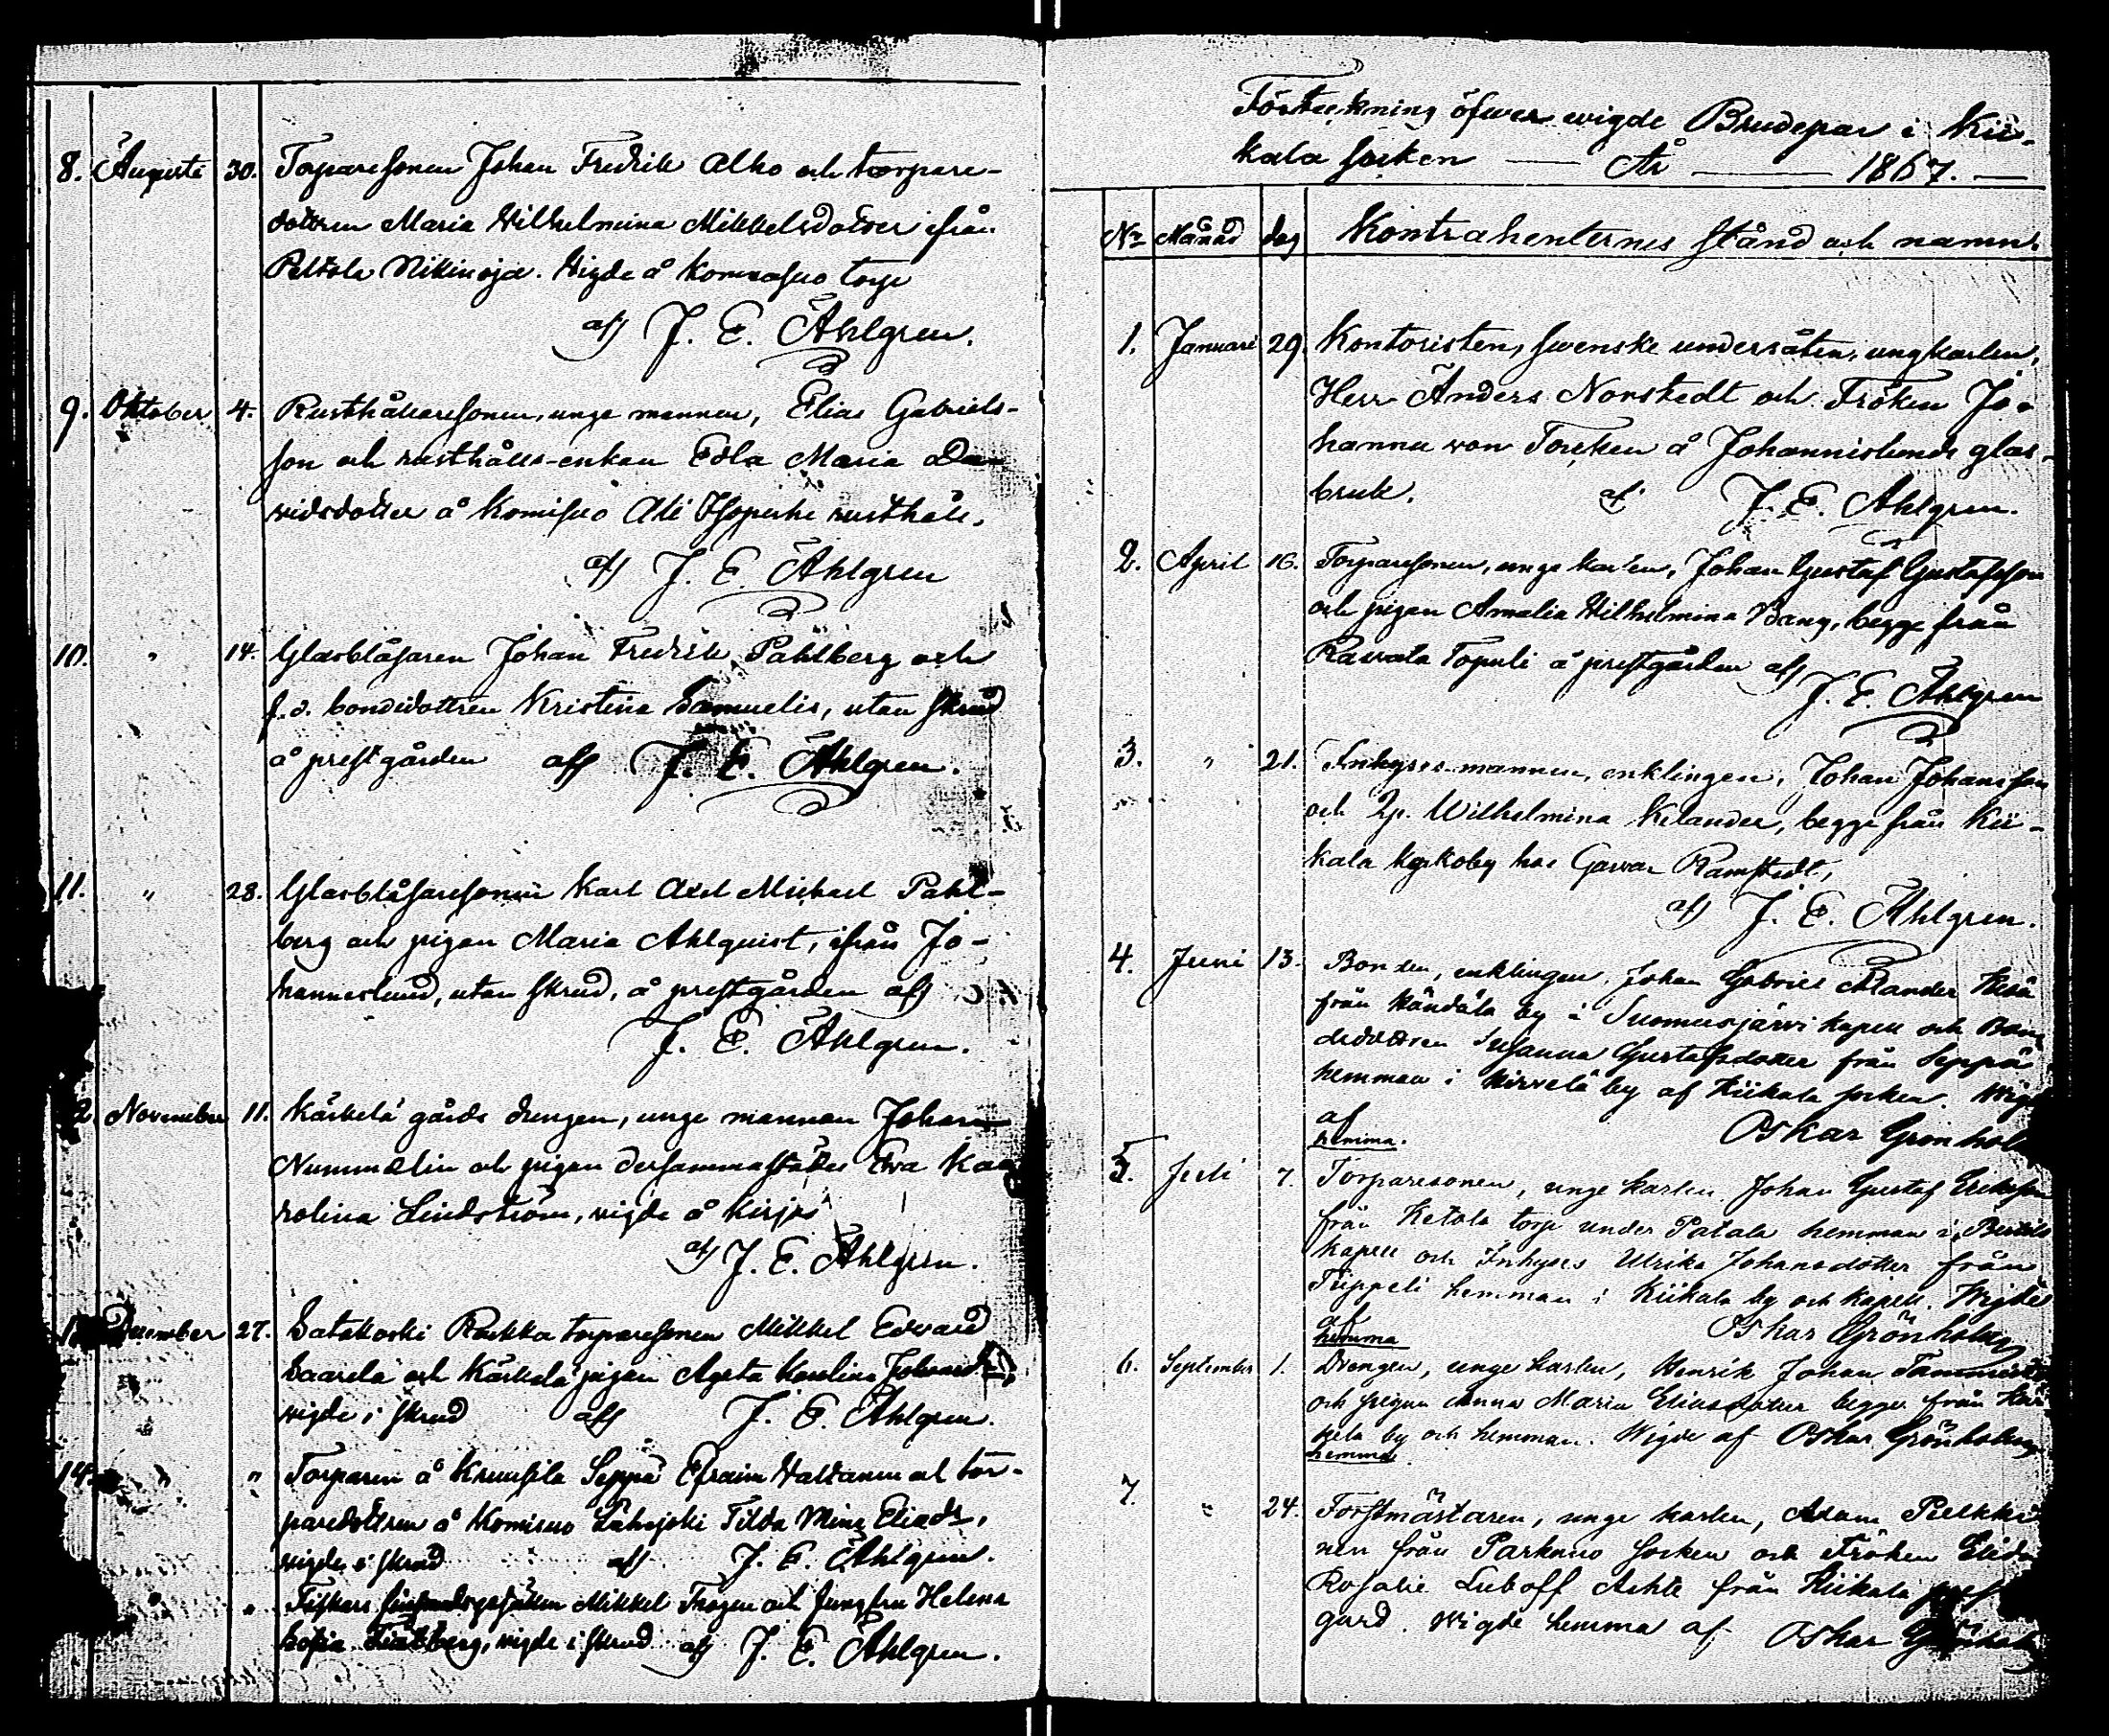 8. Augusti 30. Torparesonen Johan Fredrik Alho och torpare-
dottren Maria Wilhelmina Mikkelsdotter ifrån
Peltola Nikinoja. Wigde å Komisuo torp
af J. E. Åhlgren.
9. Oktober 4. Rusthållaresonen, unge mannen, Elias Gabriels-
son och rusthålls-enkan Edla Maria Da-
vidsdotter å Komisuo Ali Isoperhe rusthåll.
af J. E. Åhlgren
10. " 14. Glasblåsaren Johan Fredrik Pahlberg och
f.d. bondedottren Kristina Samuelis, utan skrud
å prestgården af J. E. Åhlgren.
11. " 28. Glasblåsaresonen Karl Axel Michael Pahl-
berg och pigan Maria Ahlquist, ifrån Jo-
hanneslund, utan skrud, å prestgården af
J. E. Åhlgren.
2. November 11. Kärkelä gårds drengen, unge mannen Johan
Nummelin och pigan dersammastädes Eva Ka-
rolina Lindström, wigde å Kirjas
af J. E. Åhlgren.
1 December 27. Satakoski Rackka torparesonen Mikkel Edvard
Saarela och Kärkelä pigan Agata Karolina
wigde i skrud af J. E. Åhlgren.
14. " " Torparen å Kruusila Seppä Efraim Waltanen och tor-
paredottren å Komisuo Lähejoki Tilda Mina Eliedr,
wigde i skrud af J. E. Åhlgren.
" " Fiskars Mikkel Trogen och Jungfru Helena
Sofia wigde i skrud af J. E. Åhlgren.
Förteckning öfwer wigde Brudepar i Kii-
kala socken — År — 1867. —
No Månad dag Kontrahenternes stånd och namn.
1. Januari 29. Kontoristen, swenske undersåten, ungkarlen,
Herr Anders Norstedt och Fröken Jo-
hanna von Torcken å Johannislunds glas-
bruk. af J. E. Ahlgren.
2. April 16. Torparesonen, unge karlen, Johan Gustaf Gustafsson
och pigan Amalia Wilhelmina Bang, begge från
Rawata Topuli å prestgården af
J. E. Åhlgren
3. " 21. Inhyses mannen, enklingen, Johan Johansson
och Qp. Wilhelmina Kelander, begge från Kii-
kala Kyrkoby hos Garvar Ramstedt,
af J. E. Åhlgren.
4. Juni 13. Bonden, enklingen, Johan Gabriel Alander Kesä
från Kändälä by i Suomusjärvi kapell och Bon-
dedottren Susanna Gustafsdotter från Seppä
hemman i Hirvelä by af Kiikala socken. Wigd
af
hemma. Oskar Grönhol
5. Juli 7. Torparesonen, unge karlen, Johan Gustaf Eriksson
från Ketola torp under Patala hemman i Bertils
kapell och Inhyses Ulrika Johansdotter från
Trippeli hemman i Kiikala by och kapell. Wigde
af
hemma Oskar Grönholm
6. September 1. Drengen, unge karlen, Henrik Johan Tammisto
och pigan Anna Maria Eliasdotter begge från Här-
kelä by och hemman. Wigde af Oskar Grönholm
hemma.
7. " 24. Forstmästaren, unge karlen, Adam Pelkki
nen från Parkano socken och Fröken Elida
Rosalie Luboff Achte från Kiikala prest
gård. Wigde hemma af Oskar Grönhol